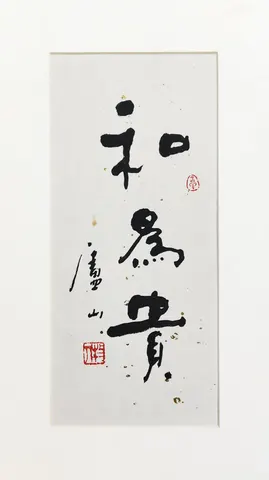 和為貴
廬山